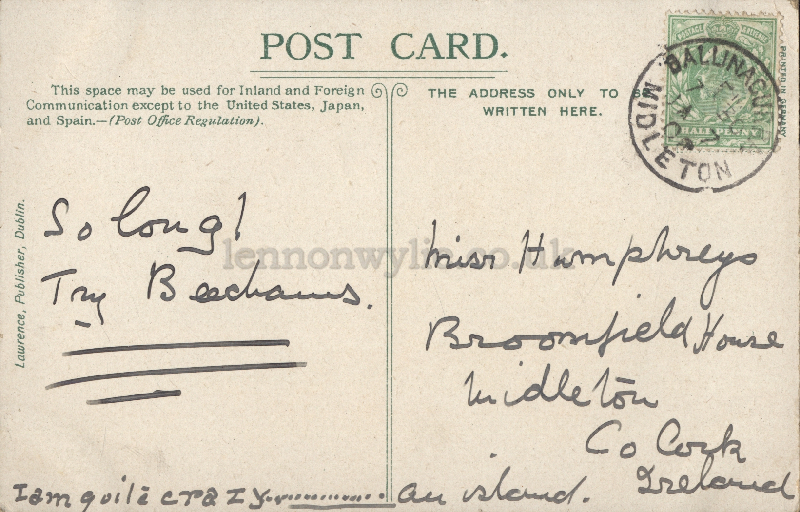 POST CARD.
This space may be used for Inland and Foreign
Communication except to the United States, Japan,
and Spain.—(Post Office Regulation).
THE ADDRESS ONLY TO BE
WRITTEN HERE.
POSTAGE REVENUE
HALFPENNY
MIDLETON
PRINTED IN GERMANY
Lawrence, Publisher, Dublin.
So long!
Try Beechams.
lennonwylie.co.uk
Miss Humphreys
Broomfield House
Midleton
Co Cork
Ireland
I am quite crazy............ an island.